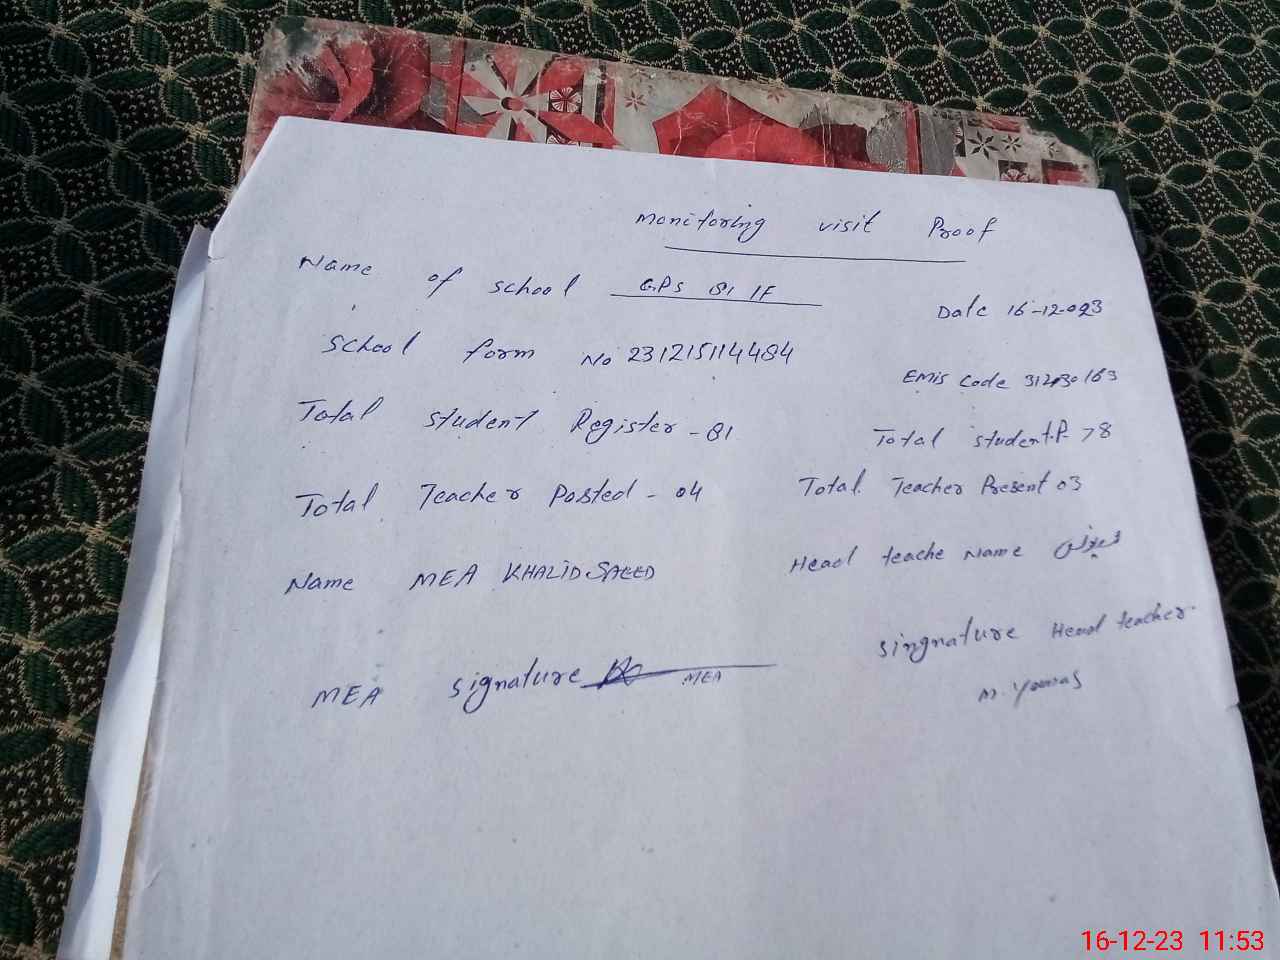 Monitoring visit Proof
Name of school GPS 81 1F
Date 16-12-023
School form No 231215114484
EMIS Code 31230163
Total student Register - 81
Total student.P. 78
Total Teacher Posted - 04
Total. Teacher Present 03
Name MEA KHALID SAEED
Head teache Name
MEA signature MEA
singnature Head teacher
M. Younas
16-12-23 11:53